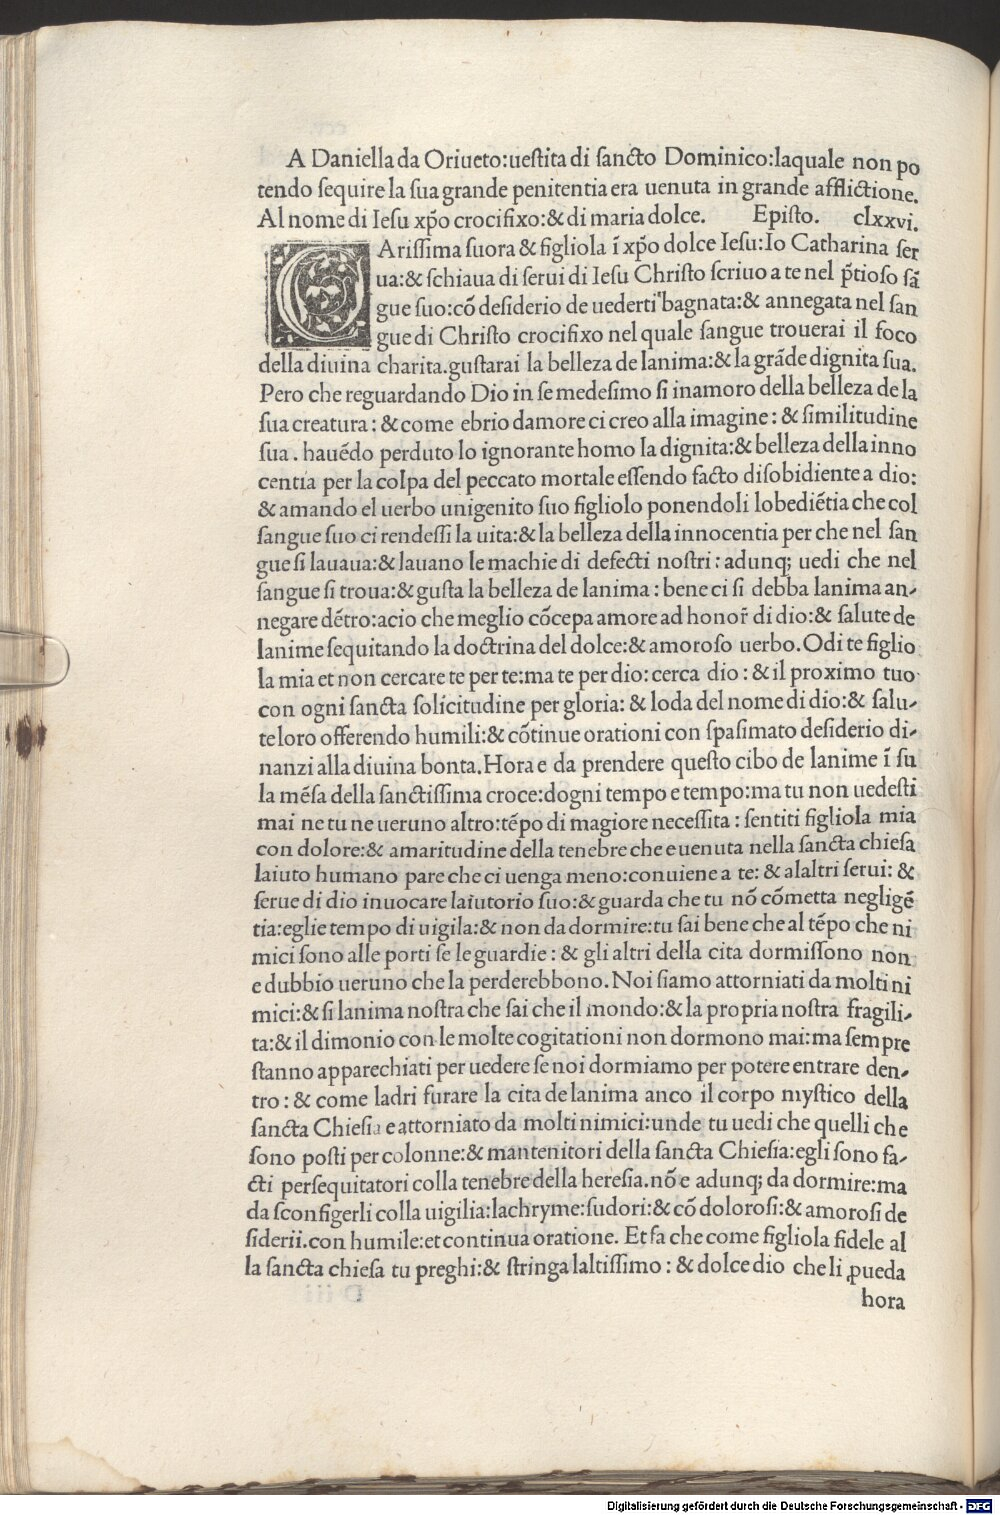 A Daniella da Oriueto:ueſtita di ſancto Dominico:laquale non po
tendo ſequire la ſua grande penitentia era uenuta in grande afflictione.
Al nome di Ieſu xp̄o crocifixo:& di maria dolce. Epiſto. clxxvi.
CAriſſima ſuora & figliola ī xp̄o dolce Ieſu:Io Catharina ſer
ua:& ſchiaua di ſerui di Ieſu Chriſto ſcriuo a te nel p̄tioſo ſā
gue ſuo:cō deſiderio de uederti bagnata:& annegata nel ſan
gue di Chriſto crocifixo nel quale ſangue trouerai il foco
della diuina charita.guſtarai la belleza de lanima:& la grāde dignita ſua.
Pero che reguardando Dio in ſe medeſimo ſi inamoro della belleza de la
ſua creatura: & come ebrio damore ci creo alla imagine: & ſimilitudine
ſua. hauēdo perduto lo ignorante homo la dignita:& belleza della inno
centia per la colpa del peccato mortale eſſendo facto diſobidiente a dio:
& amando el uerbo unigenito ſuo figliolo ponendoli lobediētia che col
ſangue ſuo ci rendeſſi la uita:& la belleza della innocentia per che nel ſan
gue ſi lauaua:& lauano le machie di defecti noſtri: adunqꝫ uedi che nel
ſangue ſi troua:& guſta la belleza de lanima: bene ci ſi debba lanima an-
negare dētro:acio che meglio cōcepa amore ad honor̄ di dio:& ſalute de
lanime ſequitando la doctrina del dolce:& amoroſo uerbo.Odi te figlio
la mia et non cercare te per te:ma te per dio: cerca dio: & il proximo tuo
con ogni ſancta ſolicitudine per gloria: & loda del nome di dio:& ſalu-
te loro offerendo humili:& cōtinue orationi con ſpaſimato deſiderio di-
nanzi alla diuina bonta.Hora e da prendere queſto cibo de lanime ī ſu
la mēſa della ſanctiſſima croce:dogni tempo e tempo:ma tu non uedeſti
mai ne tu ne ueruno altro:tēpo di magiore neceſſita: ſentiti figliola mia
con dolore:& amaritudine della tenebre che e uenuta nella ſancta chieſa
laiuto humano pare che ci uenga meno:conuiene a te: & alaltri ſerui: &
ſerue di dio inuocare laiutorio ſuo:& guarda che tu nō cōmetta negligē
tia:eglie tempo di uigila:& non da dormire:tu ſai bene che al tēpo che ni
mici ſono alle porti ſe le guardie: & gli altri della cita dormiſſono non
e dubbio ueruno che la perderebbono. Noi ſiamo attorniati da molti ni
mici:& ſi lanima noſtra che ſai che il mondo:& la propria noſtra fragili-
ta:& il dimonio con le molte cogitationi non dormono mai:ma ſempre
ſtanno apparechiati per uedere ſe noi dormiamo per potere entrare den-
tro: & come ladri furare la cita de lanima anco il corpo myſtico della
ſancta Chieſia e attorniato da molti nimici:unde tu uedi che quelli che
ſono poſti per colonne:& mantenitori della ſancta Chieſia:egli ſono fa-
cti perſequitatori colla tenebre della hereſia.nō e adunqꝫ da dormire:ma
da ſconfigerli colla uigilia:lachryme:ſudori:& cō doloroſi:& amoroſi de
ſiderii.con humile:et continua oratione. Et fa che come figliola fidele al
la ſancta chieſa tu preghi:& ſtringa laltiſſimo: & dolce dio che li ꝓueda
hora
Digitalisierung gefördert durch die Deutsche Forschungsgemeinschaft - DFG